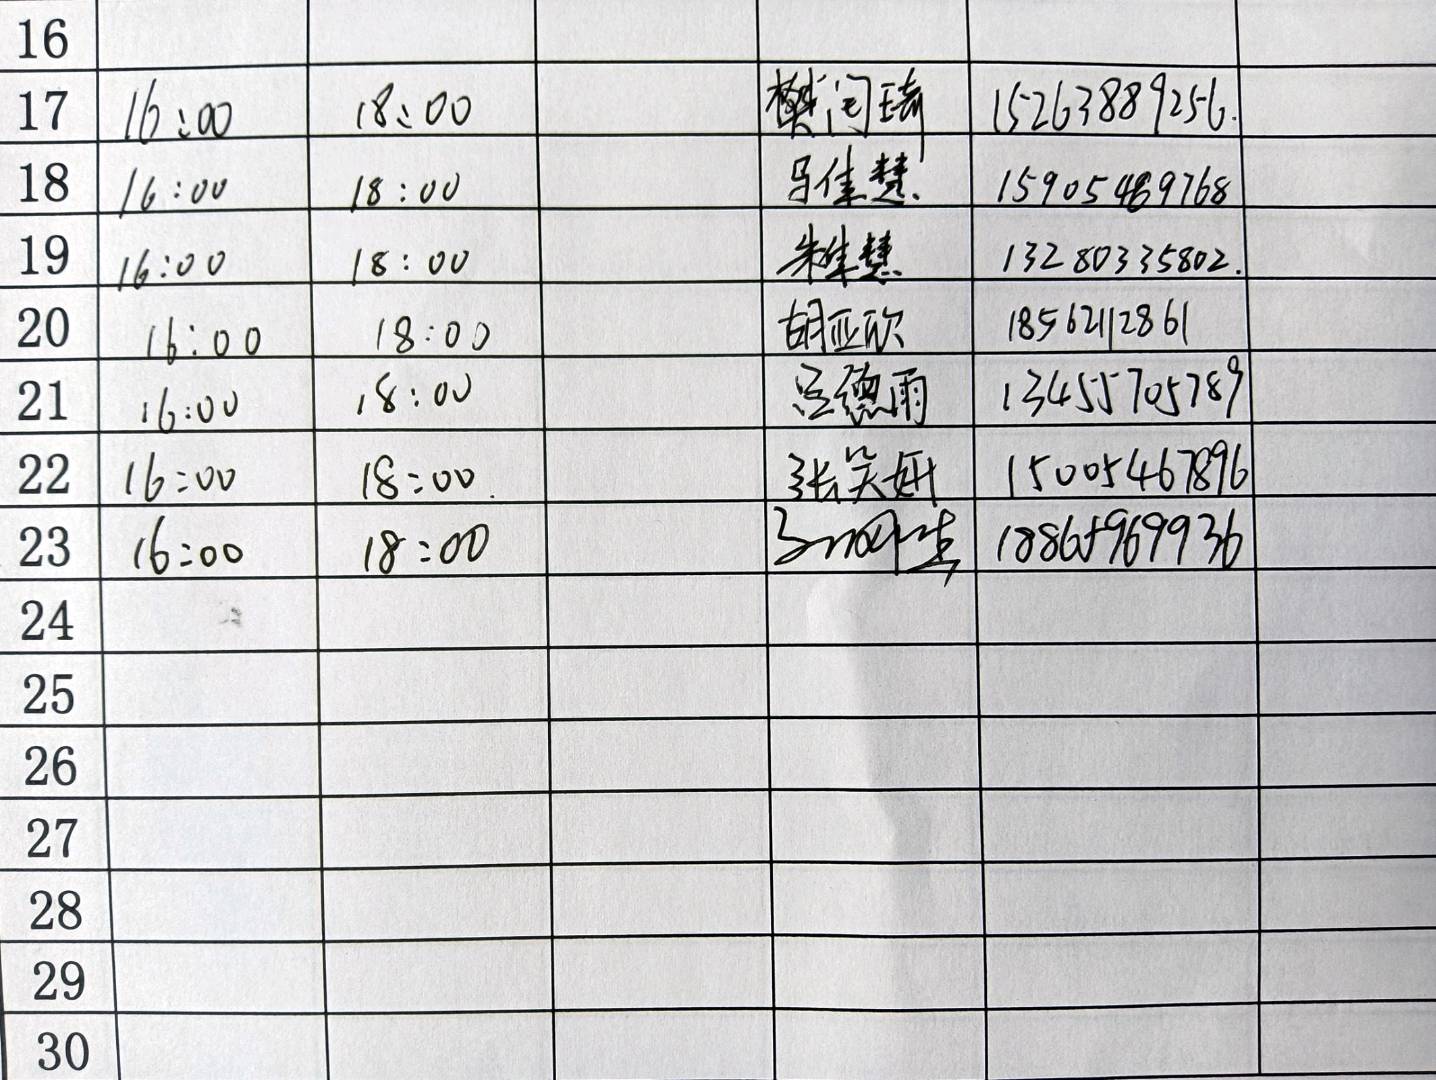 16
17 16:00 18:00 樊闰琦 15263889256.
18 16:00 18:00 马佳慧 15905489768
19 16:00 18:00 慧 13280335802.
20 16:00 18:00 胡亚欣 18562112861
21 16:00 18:00 德雨 13455705789
22 16:00 18:00. 张笑妍 15005467896
23 16:00 18:00 18865969936
24
25
26
27
28
29
30